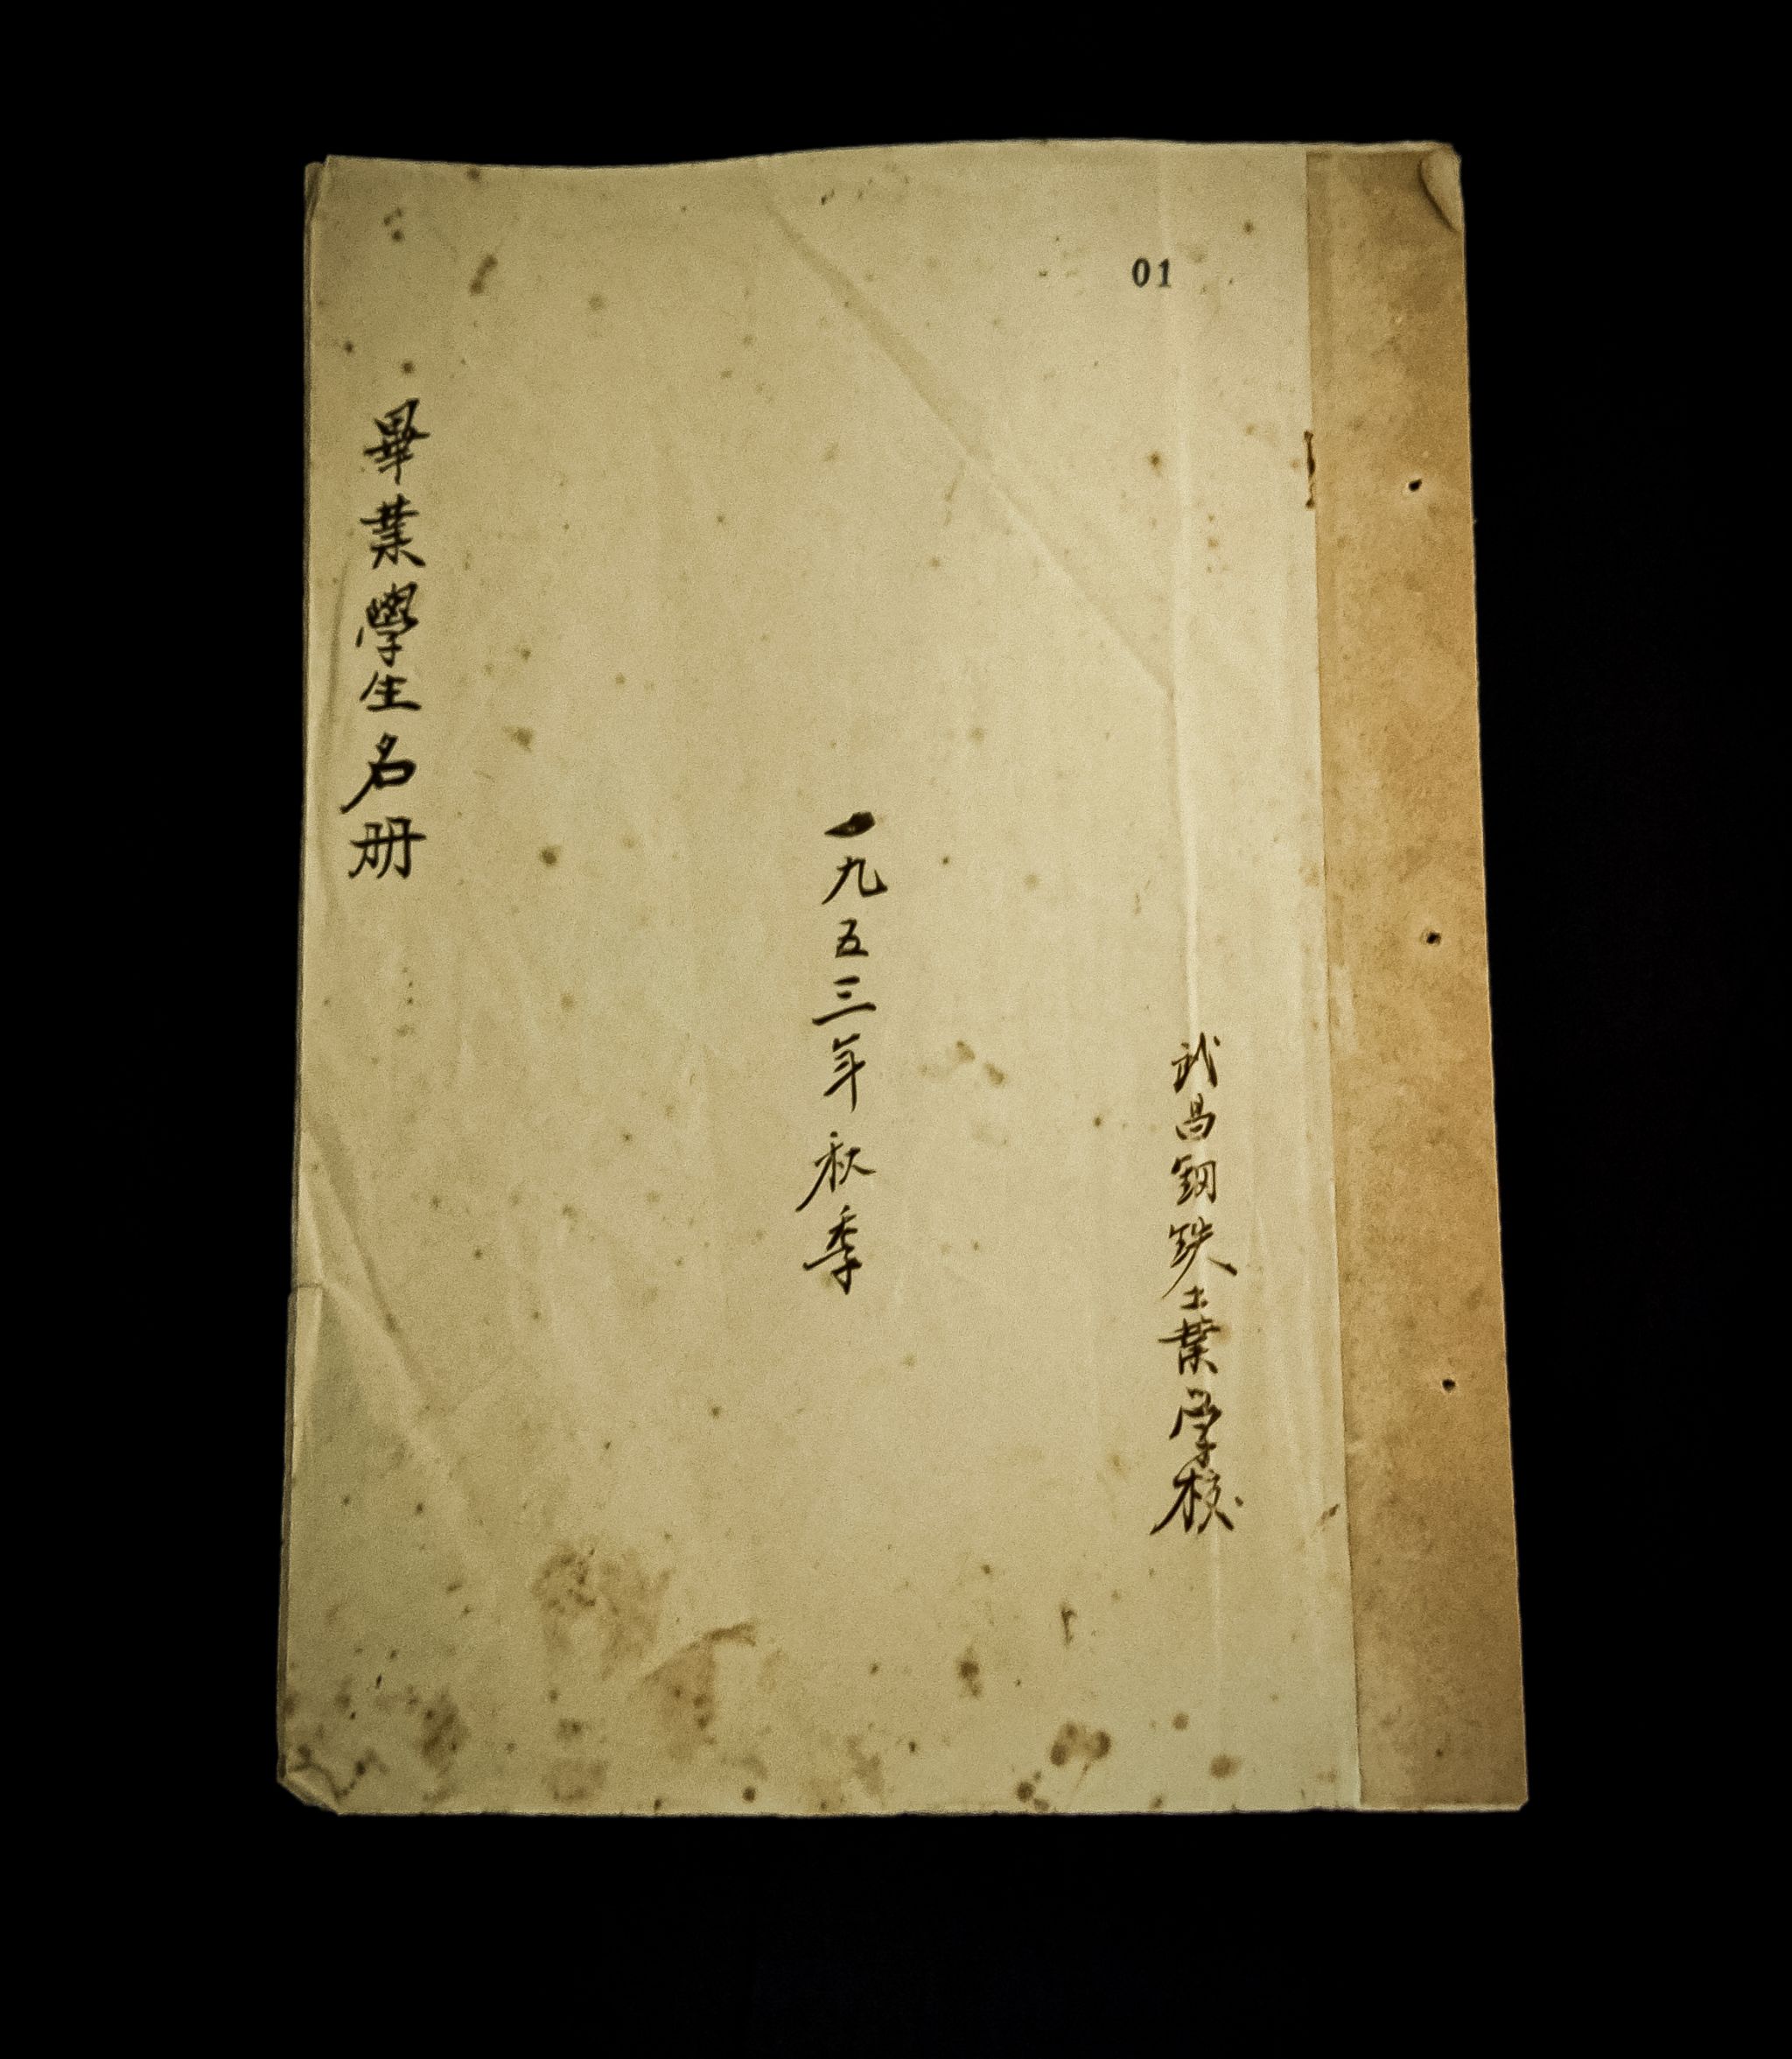 01
武昌钢铁工業学校
一九五三年秋季
畢業學生名册